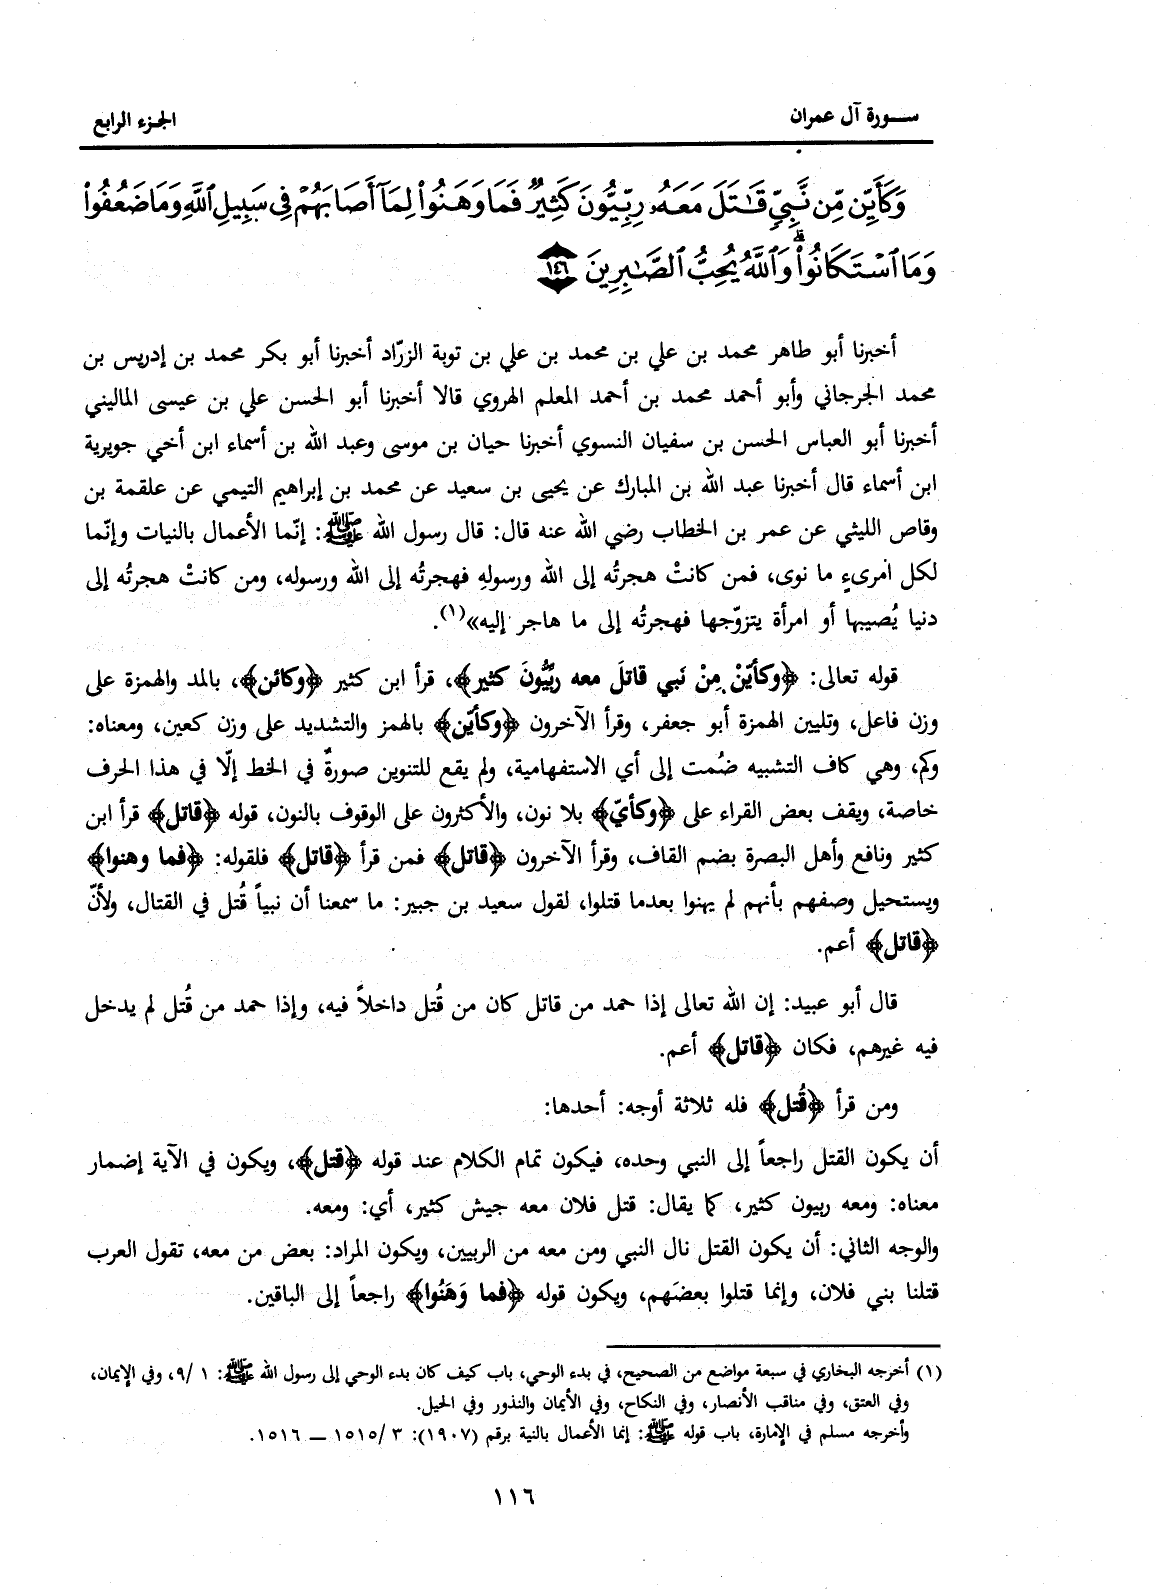 سورة آل عمران
الجزء الرابع
وَكَأَيِّن مِّن نَّبِيٍّ قَٰتَلَ مَعَهُۥ رِبِّيُّونَ كَثِيرٌ فَمَا وَهَنُوا۟ لِمَآ أَصَابَهُمْ فِى سَبِيلِ ٱللَّهِ وَمَا ضَعُفُوا۟
وَمَا ٱسْتَكَانُوا۟ ۗ وَٱللَّهُ يُحِبُّ ٱلصَّٰبِرِينَ ١٤٦
أخبرنا أبو طاهر محمد بن علي بن محمد بن علي بن توبة الزرّاد أخبرنا أبو بكر محمد بن إدريس بن
محمد الجرجاني وأبو أحمد محمد بن أحمد المعلم الهروي قالا أخبرنا أبو الحسن علي بن عيسى الماليني
أخبرنا أبو العباس الحسن بن سفيان النسوي أخبرنا حيان بن موسى وعبد الله بن أسماء ابن أخي جويرية
ابن أسماء قال أخبرنا عبد الله بن المبارك عن يحيى بن سعيد عن محمد بن إبراهيم التيمي عن علقمة بن
وقاص الليثي عن عمر بن الخطاب رضي الله عنه قال: قال رسول الله ﷺ: إنّما الأعمال بالنيات وإنّما
لكل امرىءٍ ما نوى، فمن كانتْ هجرتُه إلى الله ورسولهِ فهجرتُه إلى الله ورسوله، ومن كانتْ هجرتُه إلى
دنيا يُصيبها أو امرأة يتزوّجها فهجرتُه إلى ما هاجر إليه»(١).
قوله تعالى: ﴿وكأيّنْ مِنْ نَبي قاتلَ معه ربّيُّونَ كثير﴾، قرأ ابن كثير ﴿وكائن﴾، بالمد والهمزة على
وزن فاعل، وتليين الهمزة أبو جعفر، وقرأ الآخرون ﴿وكأيّن﴾ بالهمز والتشديد على وزن كعين، ومعناه:
وكم، وهي كاف التشبيه ضُمت إلى أي الاستفهامية، ولم يقع للتنوين صورةٌ في الخط إلّا في هذا الحرف
خاصة، ويقف بعض القراء على ﴿وكأيّ﴾ بلا نون، والأكثرون على الوقوف بالنون، قوله ﴿قاتل﴾ قرأ ابن
كثير ونافع وأهل البصرة بضم القاف، وقرأ الآخرون ﴿قاتل﴾ فمن قرأ ﴿قاتل﴾ فلقوله: ﴿فما وهنوا﴾
ويستحيل وصفهم بأنهم لم يهنوا بعدما قتلوا، لقول سعيد بن جبير: ما سمعنا أن نبياً قُتل في القتال، ولأنّ
﴿قاتل﴾ أعم.
قال أبو عبيد: إن الله تعالى إذا حمد من قاتل كان من قُتل داخلاً فيه، وإذا حمد من قُتل لم يدخل
فيه غيرهم، فكان ﴿قاتل﴾ أعم.
ومن قرأ ﴿قُتل﴾ فله ثلاثة أوجه: أحدها:
أن يكون القتل راجعاً إلى النبي وحده، فيكون تمام الكلام عند قوله ﴿قتل﴾، ويكون في الآية إضمار
معناه: ومعه ربيون كثير، كما يقال: قتل فلان معه جيش كثير، أي: ومعه.
والوجه الثاني: أن يكون القتل نال النبي ومن معه من الربيين، ويكون المراد: بعض من معه، تقول العرب
قتلنا بني فلان، وإنما قتلوا بعضَهم، ويكون قوله ﴿فما وَهَنُوا﴾ راجعاً إلى الباقين.
(١) أخرجه البخاري في سبعة مواضع من الصحيح، في بدء الوحي، باب كيف كان بدء الوحي إلى رسول الله ﷺ: ١ /٩، وفي الإيمان،
وفي العتق، وفي مناقب الأنصار، وفي النكاح، وفي الأيمان والنذور وفي الحيل.
وأخرجه مسلم في الإمارة، باب قوله ﷺ: إنما الأعمال بالنية برقم (١٩٠٧): ٣ /١٥١٥ ــ ١٥١٦.
١١٦